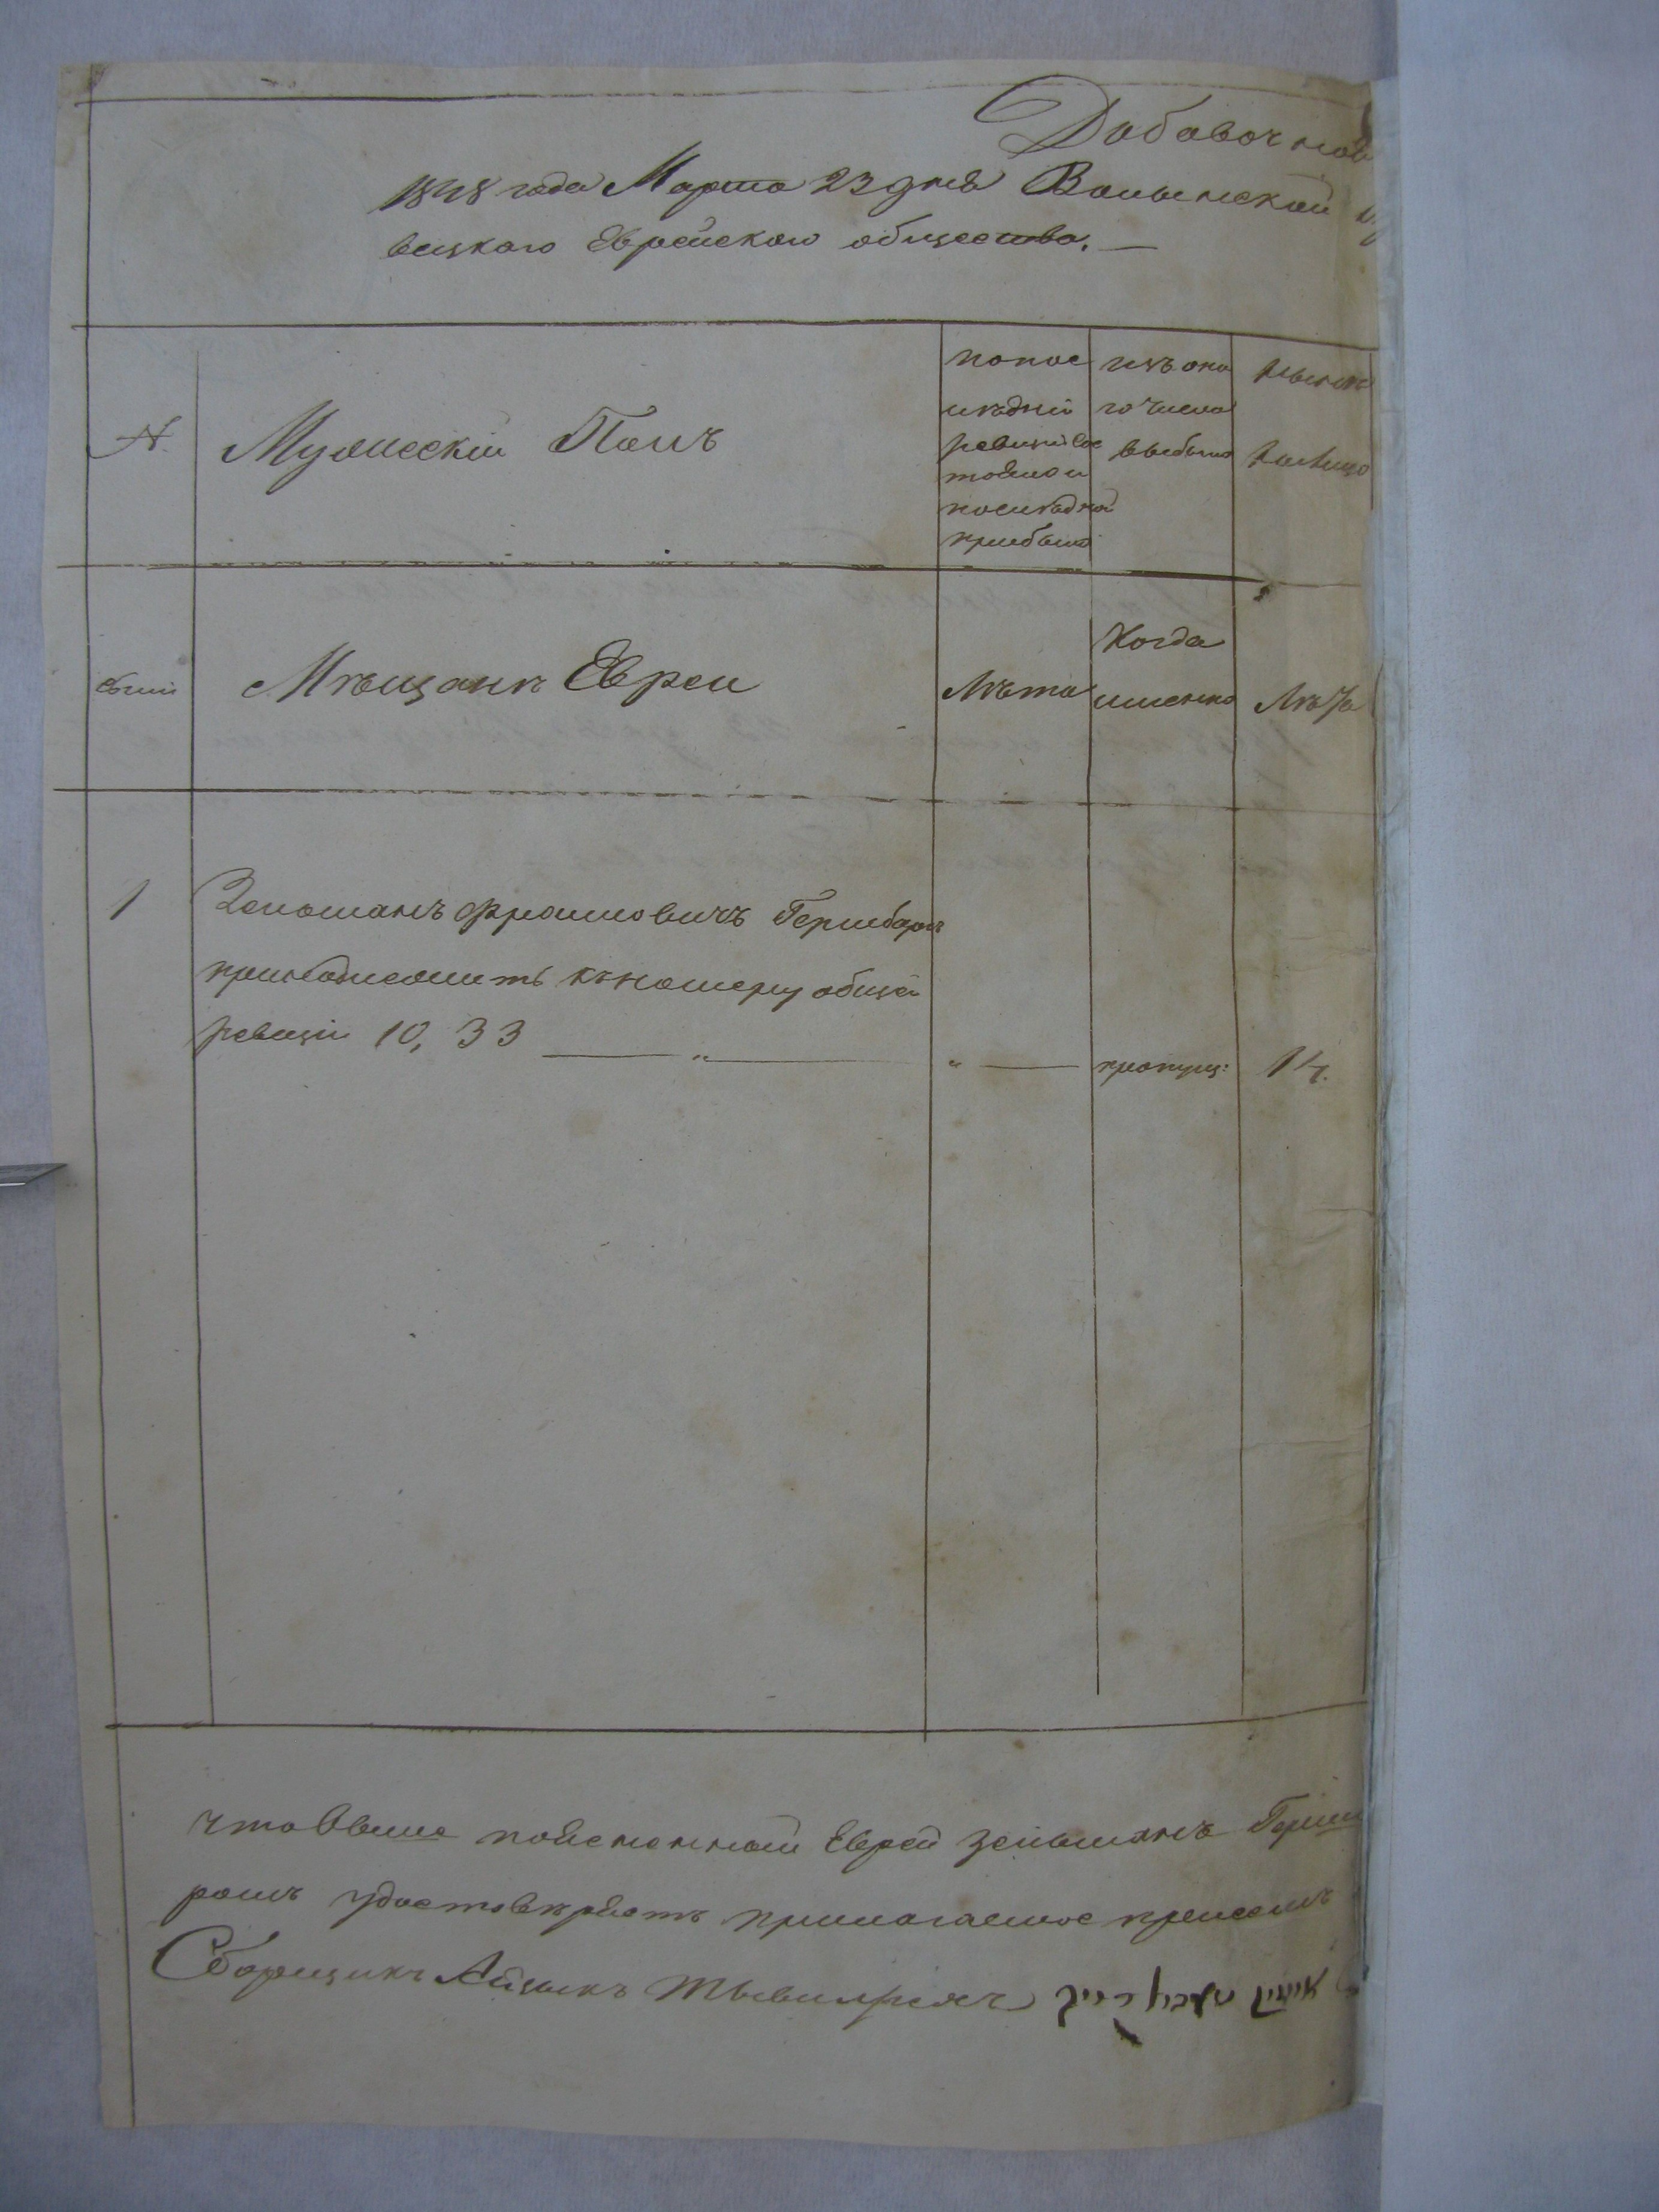 Добавочная
1848 года Марта 23 дня Волынской
вецкого Еврейского общества.
№
Мужескій Полъ
попос
лѣдней
ревизіи сос
тояло и
послѣдна
прибыло
изъ она
го числа
выбыло
нынѣ
налицо
Мѣщанѣ Евреи
Лѣта
Когда
именно
Лѣта
1
Зельманъ Фроимовичъ
принадлежитъ къ номеру общей
ревизіи 10, 33 — „ —
„ —
пропущ:
14.
что выше поясненный Еврей Зельманъ Герш
удостовѣряетъ прилагаемое при семъ
Сборщикъ Айзикъ